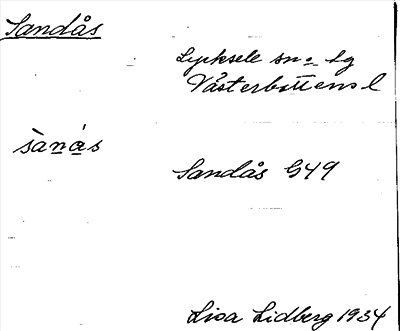 Sandås
Lycksele sn o. Lg
Västerbottens l
sànás
Sandås G49
Lisa Lidberg 1934